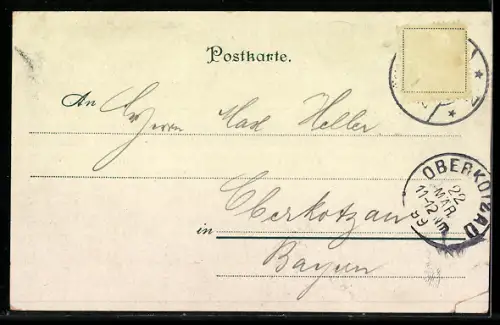 Postkarte.
An Herrn Max Heller
in Oberkotzau
Bayern
OBERKOTZAU
22
MAR
11-12 Vm
99